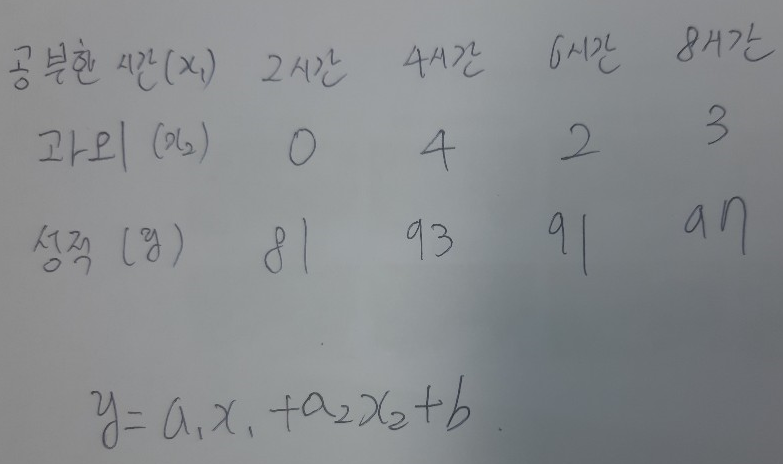 공부한 시간(x₁) 2시간 4시간 6시간 8시간
과외 (x₂) 0 4 2 3
성적 (y) 81 93 91 97
y = a₁x₁ + a₂x₂ + b.